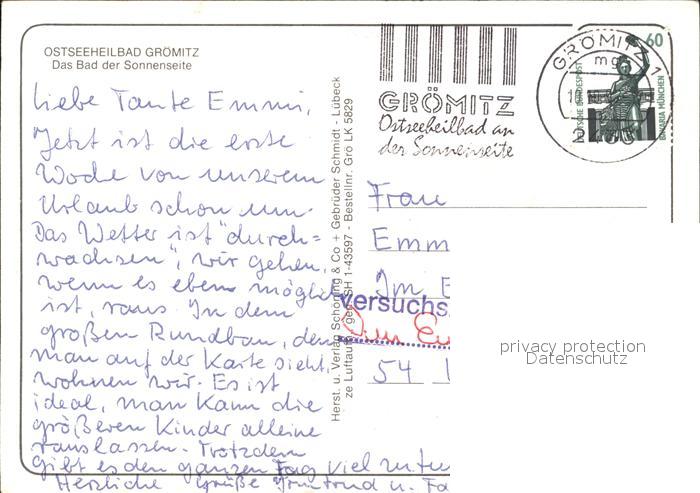 OSTSEEHEILBAD GRÖMITZ
Das Bad der Sonnenseite
Liebe Tante Emmi,
Jetzt ist die erste
Woche von unserem
Urlaub schon um.
Das Wetter ist "durch=
wachsen", wir gehen,
wenn es eben möglich
ist, raus. In dem
großen Rundbau, den
man auf der Karte sieht,
wohnen wir. Es ist
ideal, man kann die
größeren Kinder alleine
rauslassen. Trotzdem
gibt es den ganzen Tag viel zu tu
Herzliche Grüße Irmtrud u. Fa
Herst. u. Verlag Schöning & Co + Gebrüder Schmidt - Lübeck
SH 1-43597 - Bestellnr. Grö LK 5829
GRÖMITZ
Ostseeheilbad an
der Sonnenseite
GRÖMITZ 1
mg
60
DEUTSCHE BUNDESPOST
BAVARIA MÜNCHEN
Frau
Emm
Im E
versuchs
54
privacy protection
Datenschutz